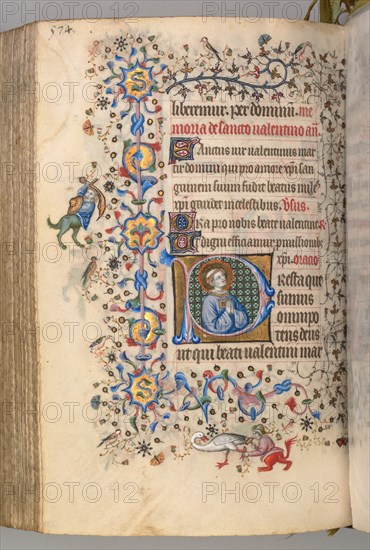 574
liberemur. Per dominum. me
moria de sancto ualentino an̄.
Sanctus uir ualentinus mar
tir domini qui pro amore xp̄i san
guinem suum fudit beatus
xp̄i gaudet in celestibus. V̄sus.
Ora pro nobis beate ualentine
Ut digni efficiamur promissionib
xp̄i. Oracio
Presta que
sumus
omnipo
tens deus
ut qui beati ualentini mar
PHOTO 12